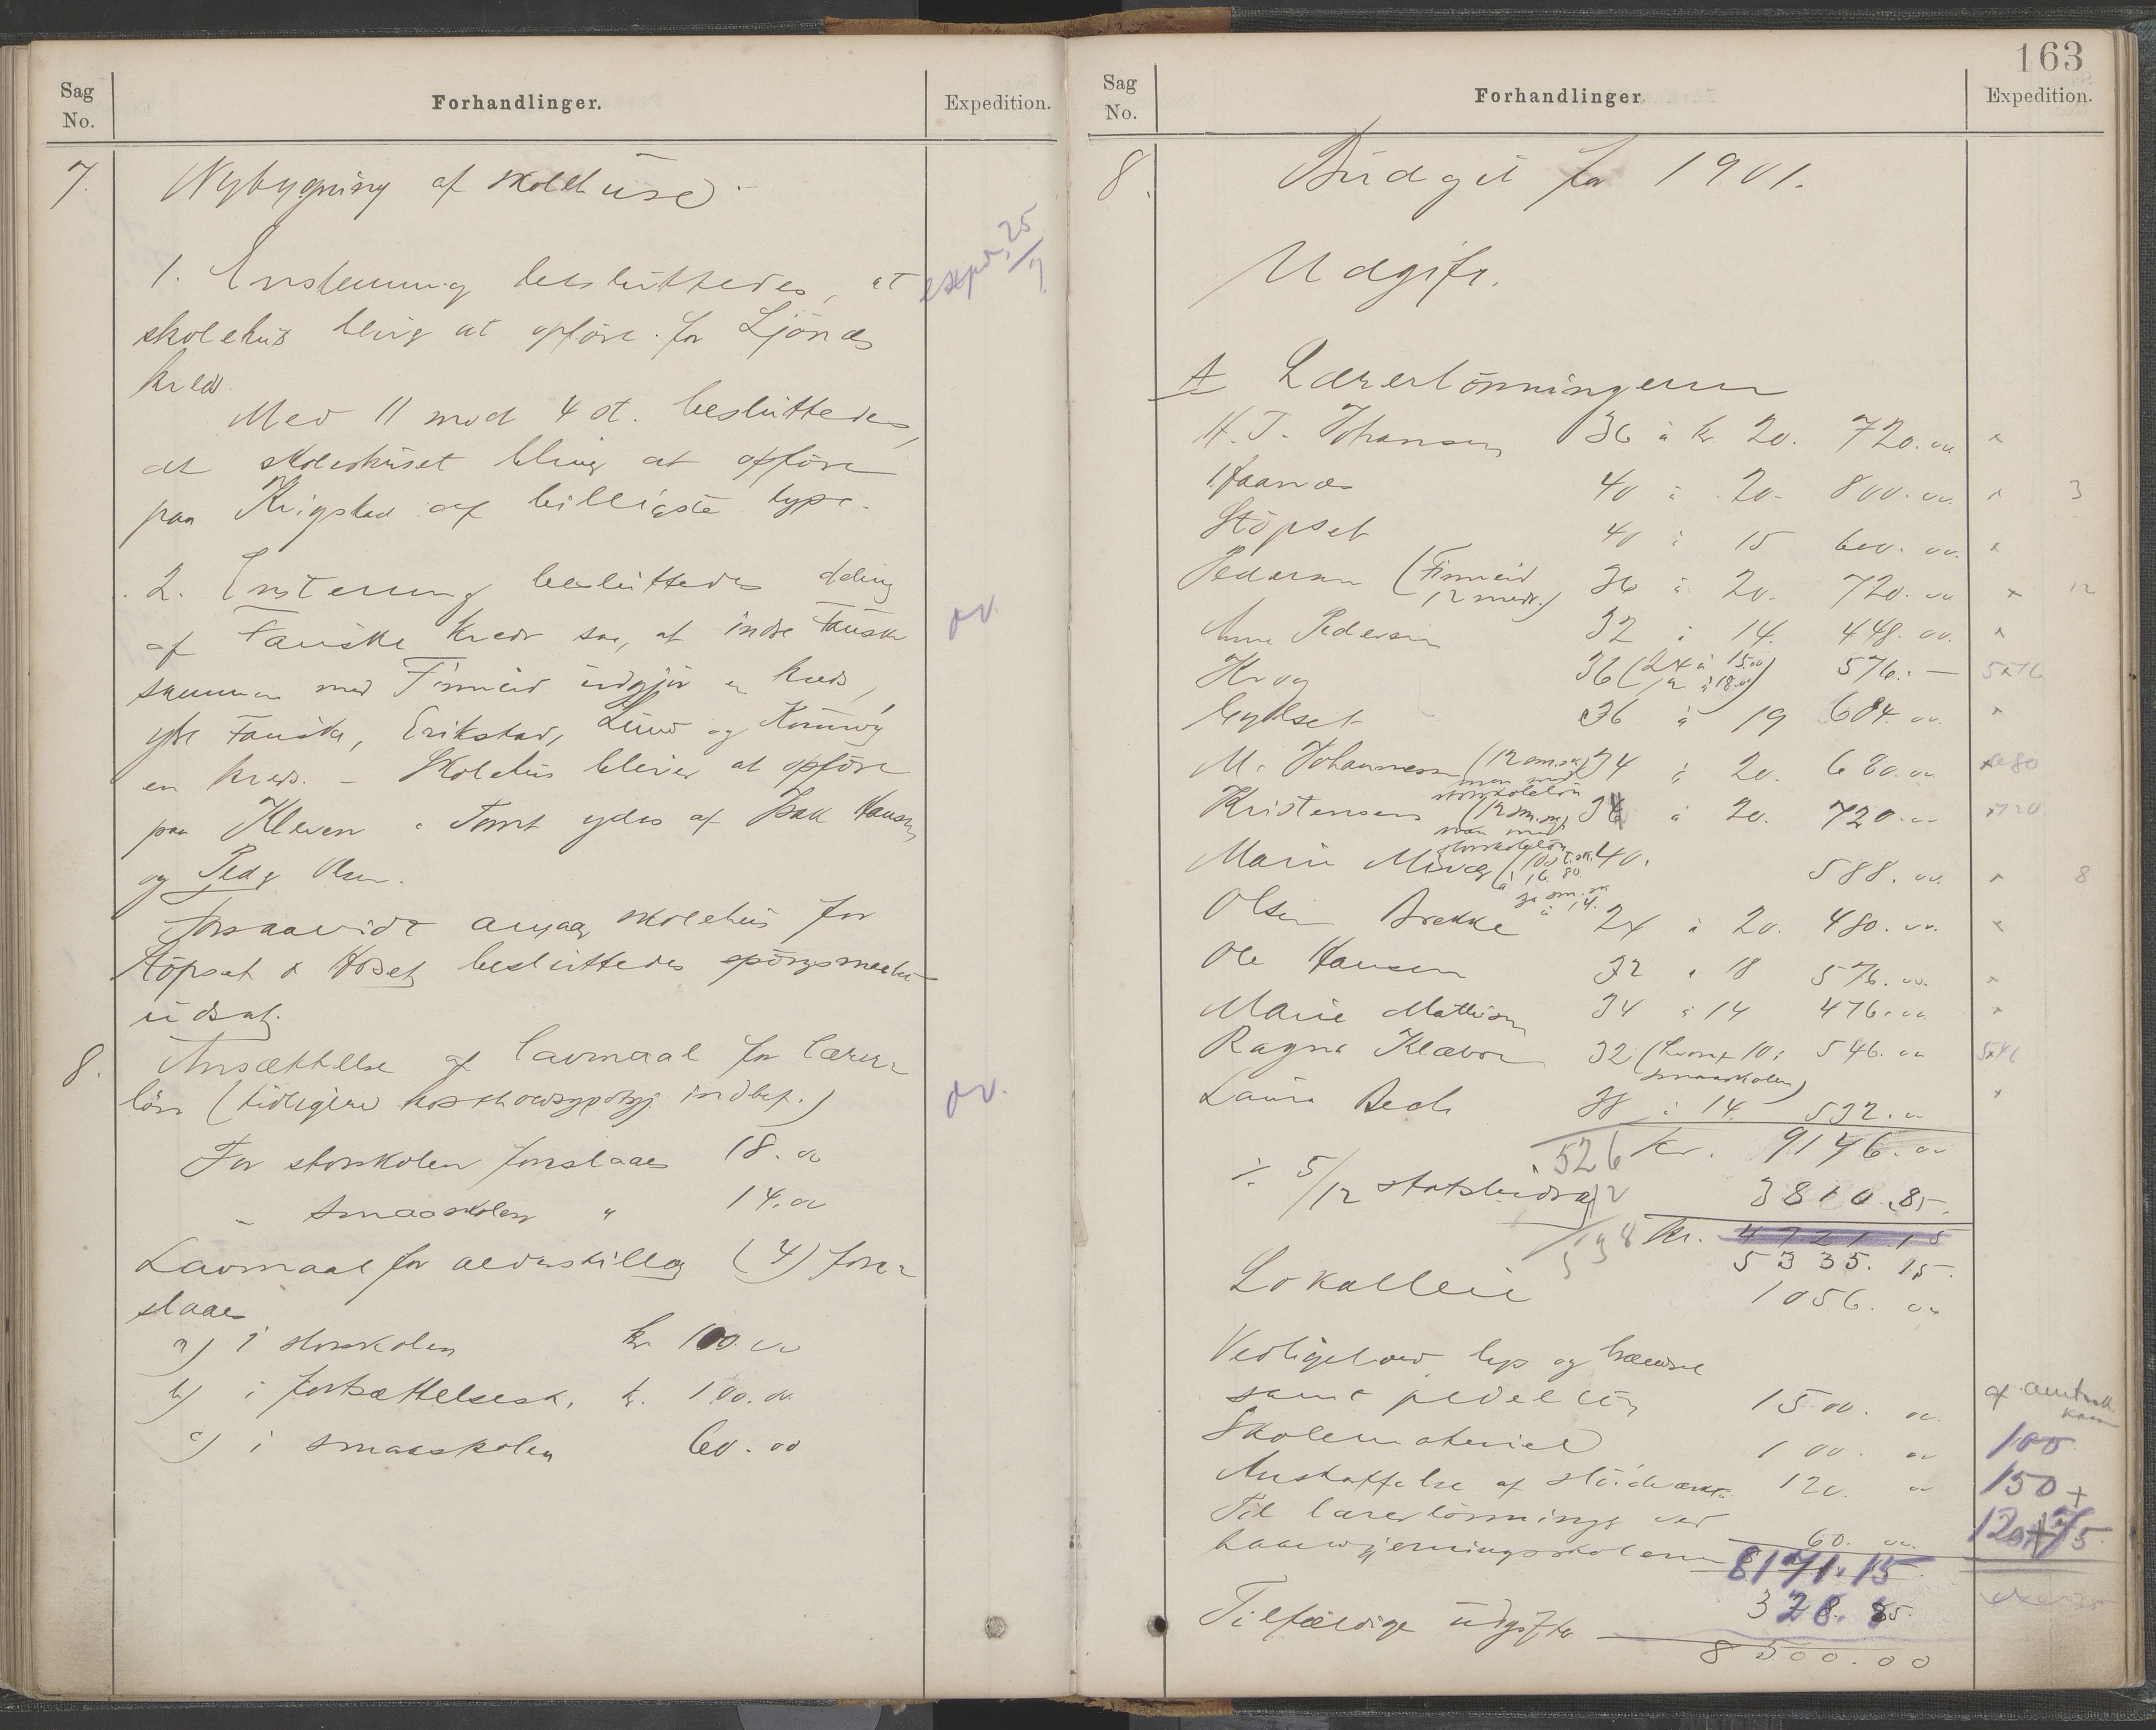 Sag No.
Forhandlinger.
Expedition.
7. Nybygning af skolehuse.
1. Enstemmig besluttedes, at
expd. 25/9
skolehus bliver at opføre for Ljönæs
kreds.
Med 11 mod 4 st. besluttedes,
at skolehuset bliver at opføre
paa Krigstad af billigste type.
2. Enstemmig besluttedes deling
af Fauske kreds saa, at indre Fauske
ov.
sammen med Finneid udgjør en kreds,
ytre Fauske, Erikstad, Lund og
en kreds. – Skolehus bliver at opføre
paa Kleven. Tomt ydes af Isak Hansen
og Peder Olsen.
Forsaavidt angaar skolehus for
Stöpset & Hoset besluttedes spörgsmaalet
udsat.
8. Ansættelse af lavmaal for lærer-
lön (tidligere kosthold indbef.)
ov.
For storskolen foreslaaes 18.00
– smaaskolen " 14.00
Lavmaal for alderstillæg (4) fore-
slaaes
a) i storskolen kr. 100.00
b) i fortsættelsessk. kr. 100.00
c) i smaaskolen 60.00
163
Sag No.
Forhandlinger.
Expedition.
8. Budget for 1901.
Udgift.
A Lærerlönningerne
H. J. Johansen 36 à kr. 20. 720.00 x
Haanæs 40 à 20. 800.00 x 3
Stöpset 40 à 15 600.00 x
Pedersen (Finneid 12 ) 36 à 20. 720.00 x 12
Anne Pedersen 32 à 14. 448.00 x
Krog 36 (24 à 15.00 12 à 18.00) 576.– 576
Gylset 36 à 19 684.00 x
M. Johannessen (12 sm.sk. men med storskolelön 34 à 20. 680.00 x680
Kristensen (12 sm.sk. men med storskolelön 36 à 20. 720.00 x720
Marie Misvær (10 st.sk. à 16.80. 30 sm.sk. à 14. 40. 588.00 x 8
Olsen Brekke 24 à 20. 480.00 x
Ole Hansen 32 à 18 576.00 x
Marie Mathisen 34 à 14 476.00 x
Ragna Klæboe 32 (hvoraf 10 i smaaskolen) 546.00 546
Laura Bech 38 à 14. 532.00 x
526 Kr. 9146.00
÷ 5/12 statsbidrag 12 3810.85
538 Kr. 4721.15
5335.15
Lokalleie 1056.00
Vedligehold, lys og brændsel
samt pedellön 1500.00
af amtssk. kassen
Skolemateriel 100.00 100
Anskaffelse af slöidværktöi 120.00 150 +
Til lærerlönninger ved
haandgjerningsskolerne 60.00 120 + 75
8171.15
Tilfældige udgifter 328.85
8500.00